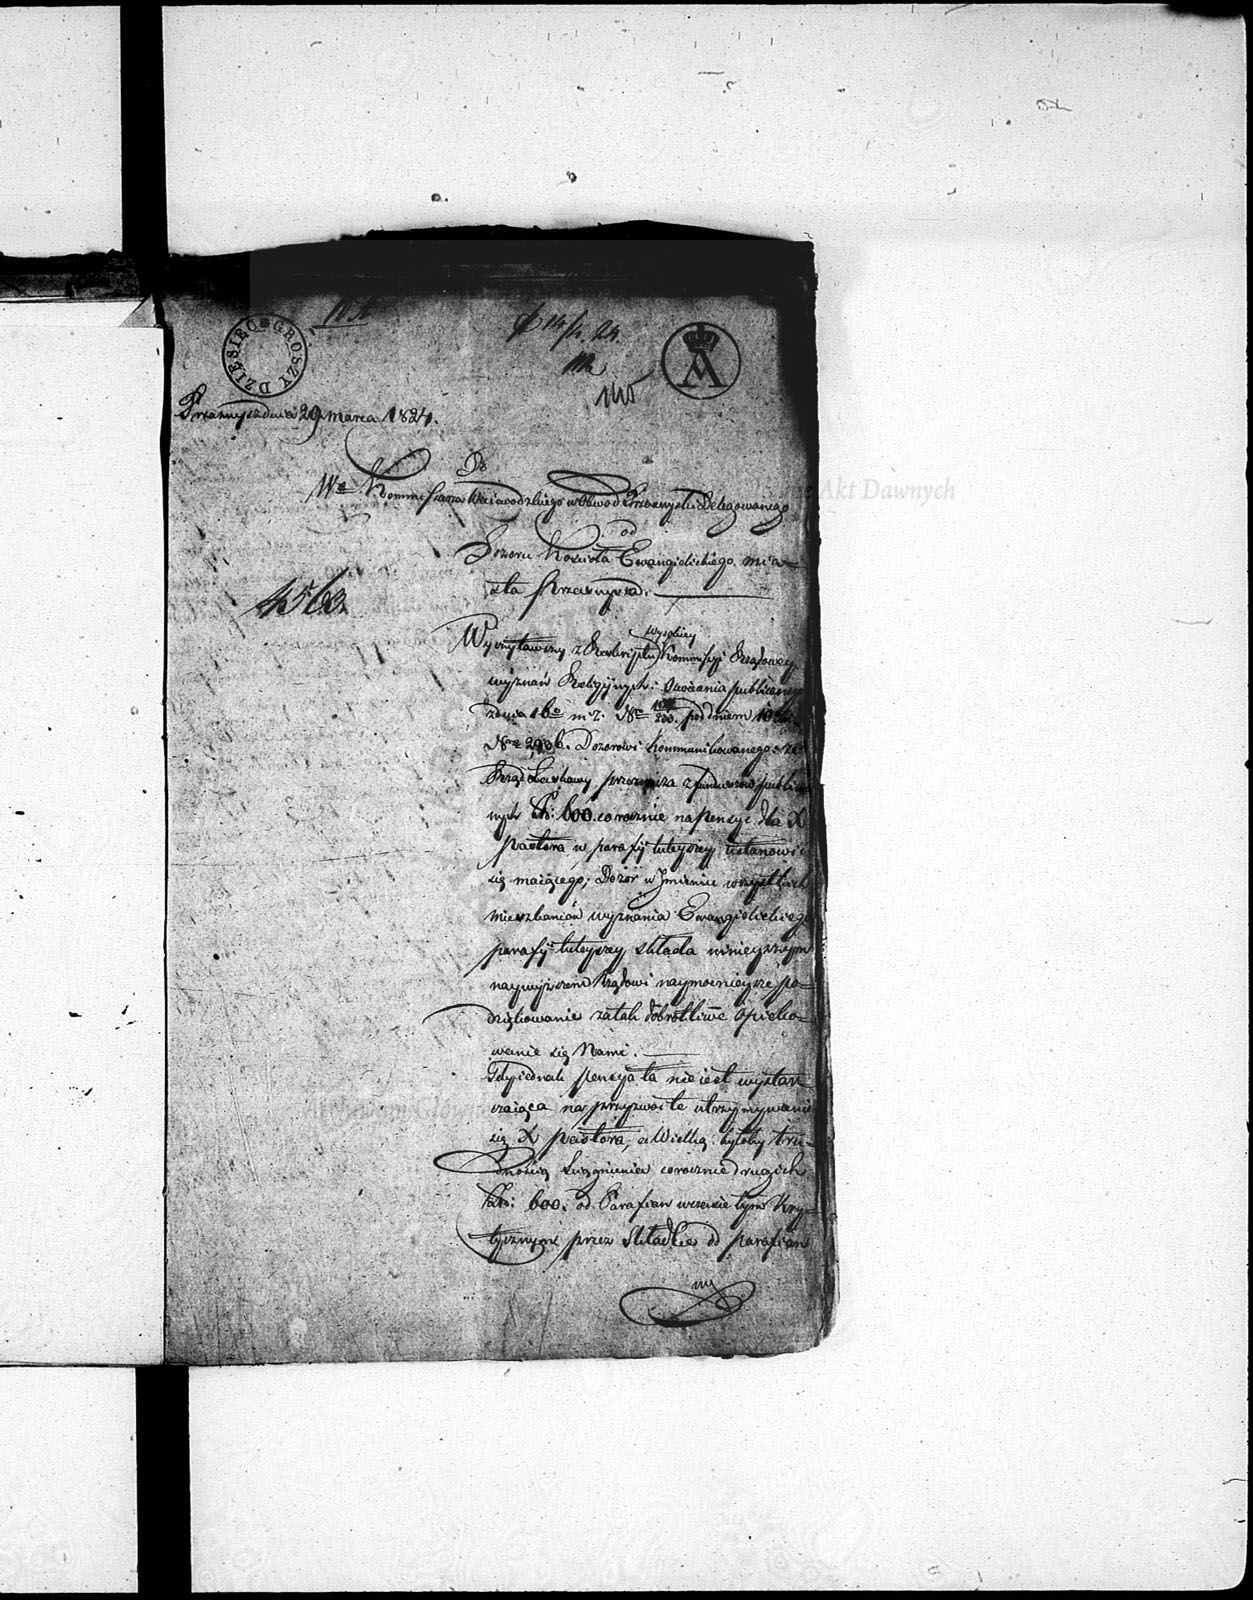 DZIESIĘĆ GROSZY
145
Przasnysz dnia 29 Marca 1824.
Do
Wo Kommissarza Woiewodzkiego w Obwod Przasnyski Delegowanego
od
Dozoru Kościoła Ewangielickiego mia=
sta Przasnysza.
4563.
Wyczytawszy z Reskryptu wysokiey Kommissyi Rządowey
wyznań Religijnych i Oświecenia publicznego
z dnia 16o m. z. Nro pod dniem
Nro 2906. Dozorowi kommunikowanego: że
Rząd Łaskawy przeznacza z funduszów publicz
nych Złt: 600. corocznie na pensyę dla X
pastora w parafij tuteyszey ustanowić
się maiącego; Dozór w Jmieniu wszystkich
mieszkańców wyznania Ewangielickiego
parafij tuteyszey składa ninieyszym
naywyższemu Rządowi naymocnieysze po=
dziękowanie za tak dobrotliwe opieko=
wanie się Nami.
Gdy iednak pensya ta nie iest wystar=
czaiąca na przyzwoite utrzymywanie
się X pastora, a Wielką byłoby tru=
dnością ściągnienie corocznie drugich
Złt: 600. od Parafian w czasie tym kry=
tycznym przez składkie od parafian
ny
Akt Dawnych
Archiwum Główne